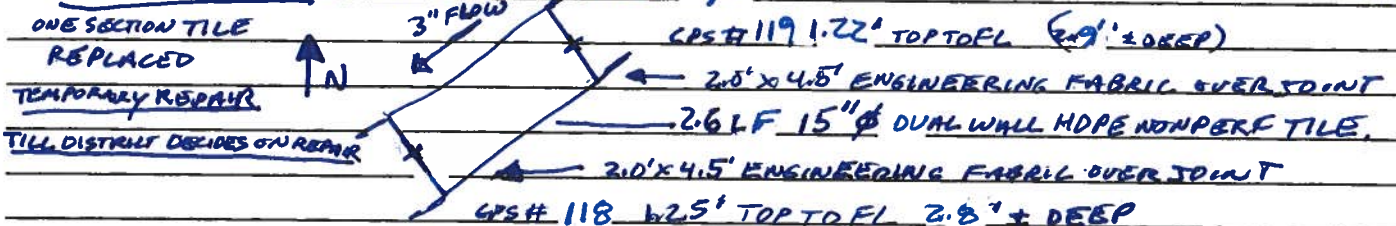 ONE SECTION TILE
REPLACED
TEMPORARY REPAIR
TILL DISTRICT DECIDES ON REPAIR
N
3" FLOW
GPS# 119 1.22' TOP TO FL (2.9' ± DEEP)
2.0' X 4.5' ENGINEERING FABRIC OVER JOINT
2.6 LF 15"ϕ DUAL WALL HDPE NONPERF TILE.
2.0' X 4.5' ENGINEERING FABRIC OVER JOINT
GPS# 118 1.25' TOP TO FL 2.8' ± DEEP